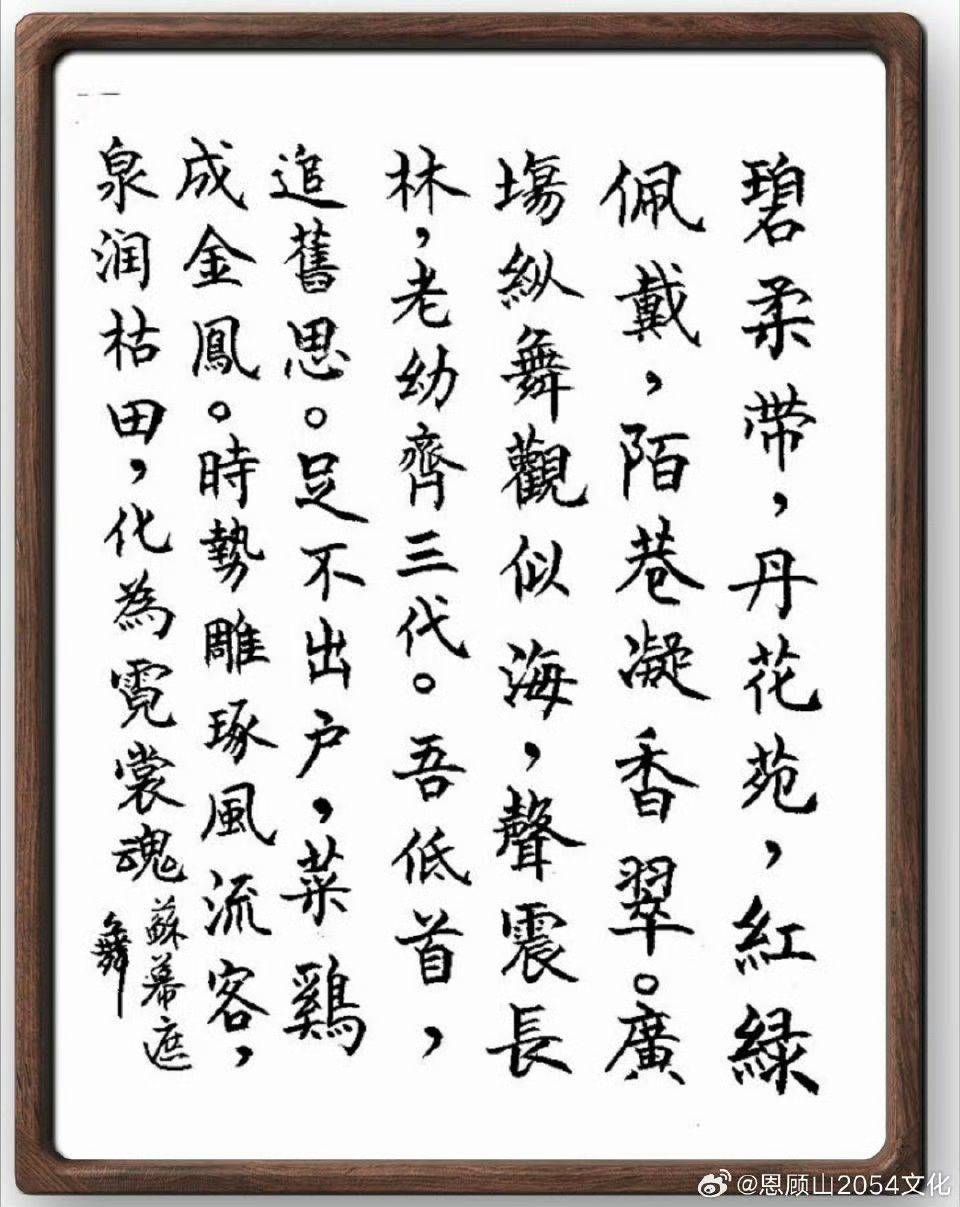 碧柔带，丹花苑，紅緑
佩戴，陌巷凝香翠。廣
塲纵舞觀似海，聲震長
林，老幼齊三代。吾低首，
追舊思。足不出户，菜鷄
成金鳳。時勢雕琢風流客，
泉润枯田，化為霓裳魂
蘇幕遮
舞
@恩顾山2054文化